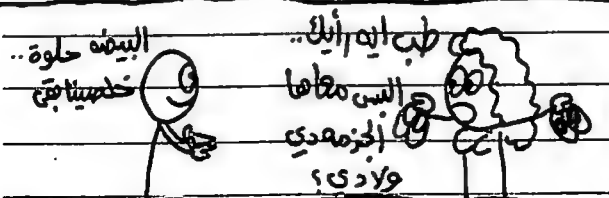 طب ايه رأيك..
البس معاها
الجزمه دي
ولا دي؟
البيضه حلوة..
خلصينا بقى